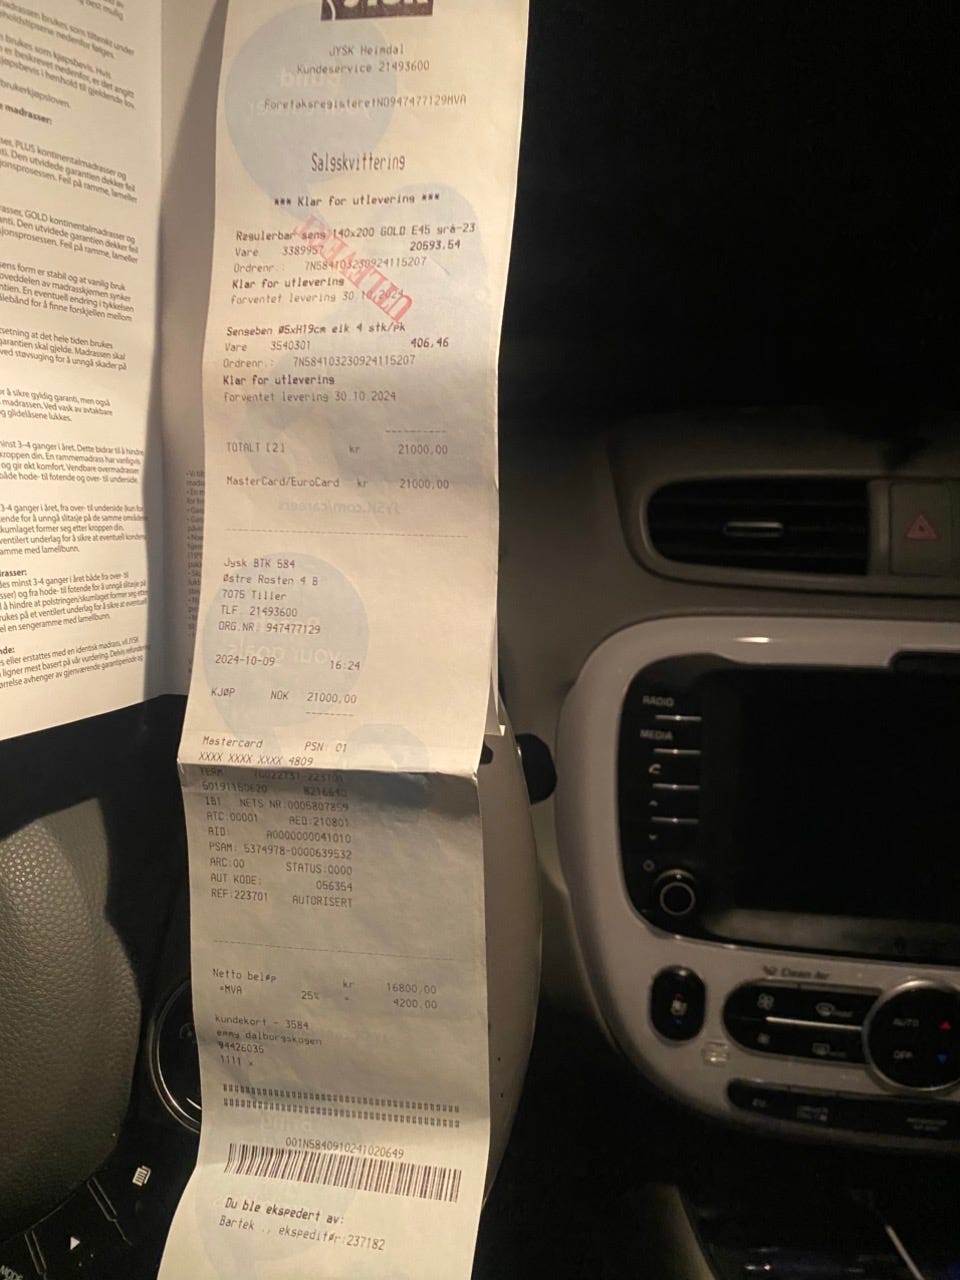 JYSK
JYSK Heimdal
Kundeservice 21493600
ForetaksregisteretNO947477129MVA
Salgskvittering
*** Klar for utlevering ***
Regulerbar seng 140x200 GOLD E45 grå-23
Vare 3389957 20593,54
Ordrenr.: 7N584103230924115207
Klar for utlevering
forventet levering 30.10.2024
UTLEVERT
Sengeben Ø5xH19cm eik 4 stk/pk
Vare 3540301 406,46
Ordrenr.: 7N584103230924115207
Klar for utlevering
forventet levering 30.10.2024
TOTALT [2] kr 21000,00
MasterCard/EuroCard kr 21000,00
Jysk BTK 584
Østre Rosten 4 B
7075 Tiller
TLF. 21493600
ORG.NR: 947477129
2024-10-09 16:24
KJØP NOK 21000,00
Mastercard PSN: 01
XXXX XXXX XXXX 4809
TERM
IB1 NETS NR:0005807859
ATC:00001 AED:210801
AID: A0000000041010
PSAM: 5374978-0000639532
ARC:00 STATUS:0000
AUT KODE: 056354
REF:223701 AUTORISERT
Netto beløp kr 16800,00
=MVA 25% = 4200,00
kundekort - 3584
emmy dalborgskogen
94426035
1111 x
001N5840910241020649
Du ble ekspedert av:
Bartek ., ekspeditør:237182
madrassen brukes som tiltenkt under
brukes som kjøpsbevis. Hvis
er beskrevet nedenfor, er det angitt
kjøpsbevis i henhold til gjeldende lov
brukerkjøpsloven.
madrasser:
sser, PLUS kontinentalmadrasser og
nti. Den utvidede garantien dekker feil
sjonsprosessen. Feil på ramme, lameller
rasser, GOLD kontinentalmadrasser og
anti. Den utvidede garantien dekker feil
sjonsprosessen. Feil på ramme, lameller
sens form er stabil og at vanlig bruk
oveddelen av madrasskjernen synker
ntien. En eventuell endring i tykkelsen
målebånd for å finne forskjellen mellom
setning at det hele tiden brukes
garantien skal gjelde. Madrassen skal
ved støvsuging for å unngå skader på
or å sikre gyldig garanti, men også
madrassen. Ved vask av avtakbare
og glidelåsene lukkes.
minst 3–4 ganger i året. Dette bidrar til å hindre
kroppen din. En rammemadrass har vanligvis
og gir økt komfort. Vendbare overmadrasser
både hode- til fotende og over- til underside.
3-4 ganger i året, fra over- til underside (kun for
ende for å unngå slitasje på de samme områdene
skumlaget former seg etter kroppen din.
ventilert underlag for å sikre at eventuell kondens
amme med lamellbunn.
drasser:
des minst 3-4 ganger i året både fra over- til
sser) og fra hode- til fotende for å unngå slitasje på
l å hindre at polstringen/skumlaget former seg etter
brukes på et ventilert underlag for å sikre at eventuell
el en sengeramme med lamellbunn.
nde:
s eller erstattes med en identisk madrass, vil JYSK
ligner mest basert på vår vurdering. Delvis refundering
ørrelse avhenger av gjenværende garantiperiode og
RADIO
MEDIA
Clean Air
AUTO
OFF
MODE